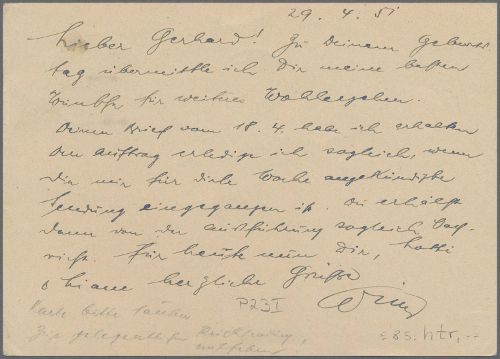 29. 4. 51
Lieber Gerhard! Zu Deinem Geburts
tag übermittle ich Dir meine besten
Wünsche für weiteres Wohlergehen.
Deinen Brief vom 18. 4. habe ich erhalten
Den Auftrag erledige ich sogleich, wenn
die mir für diese Woche angekündigte
Sendung eingegangen ist. Du erhältst
dann von der Ausführung sogleich Nach-
richt. Für heute nun Dir,
herzliche Grüße
Karte bitte
P23I